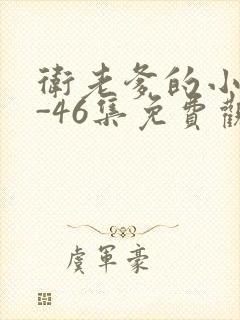 衛老爹的小
-46集免費觀
虞軍豪